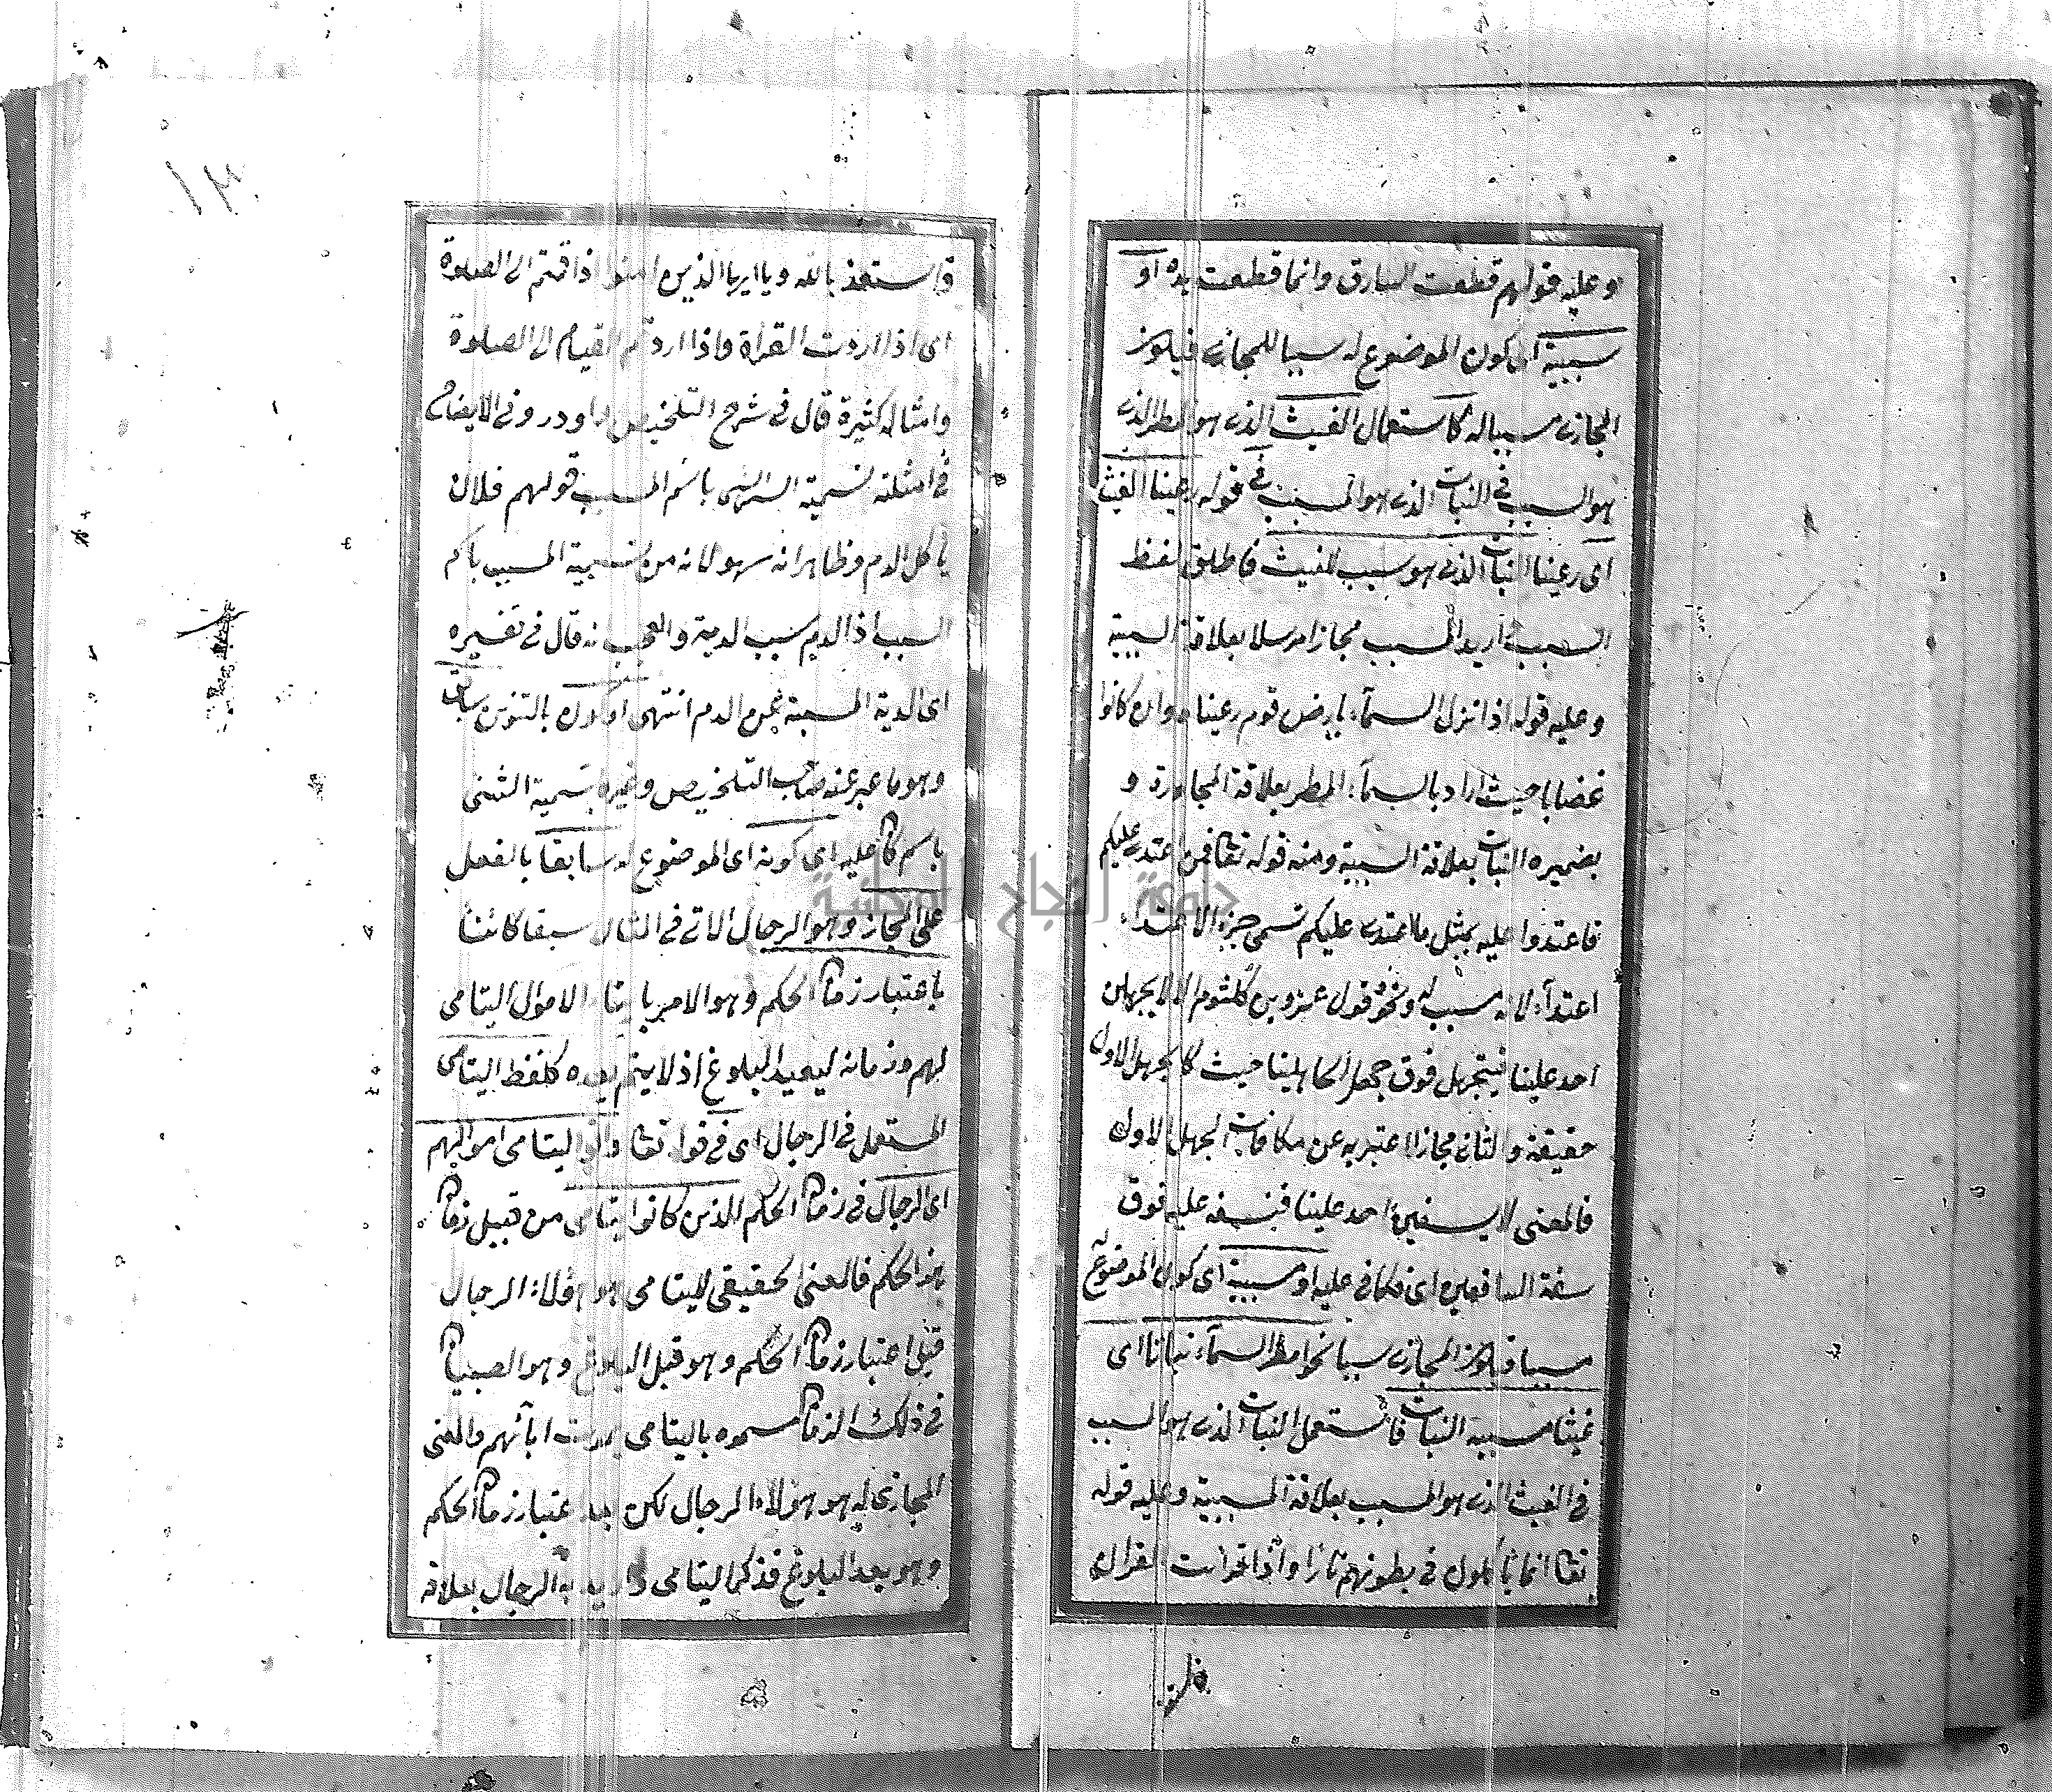 وعليه قولهم قطعت السارق وانما قطعت يده او
سببية اى كون الموضوع له سببا للمجازى فيكون
المجازى مسبباله كاستعمال الغيث الذى هو المطر الذى
هو السبب فى النبات الذى هو المسبب فى قوله رعينا الغيث
اى رعينا النبات الذى هو سبب للغيث فاطلق لفظ
السبب واريد المسبب مجازا مرسلا بعلاقة السببية
وعليه قوله اذا نزل السمآء بارض قوم رعيناه وان كانوا
غضابا حيث اراد بالسمآء المطر بعلاقة المجاورة و
بضميره النبات بعلاقة السببية ومنه قوله تعا فمن اعتدى عليكم
فاعتدوا عليه بمثل ما اعتدى عليكم سمى جزاء الاعتداء
اعتدآء لانه مسبب له ونحو قول عمرو بن كلثوم الا لا يجهلن
احد علينا فنجهل فوق جهل الجاهلينا حيث كا الجهل الاول
حقيقة والثانى مجازا اعتبر به عن مكافات الجهل الاول
فالمعنى لا يسفهن احد علينا فنسفه عليه فوق
سفه السافهين اى نكافى عليه او مسببية اى كون الموضوع
مسببا فيكون المجازى سببا نحو امطر السمآء نباتا اى
غيثا مسببه النبات فاستعمل النبات الذى هو المسبب
فى الغيث الذى هو السبب بعلاقة المسببية وعليه قوله
تعا انما يأكلون فى بطونهم نارا واذا قرات القران
فاستعذ
فاستعذ بالله ويا ايها الذين امنوا اذا قمتم الى الصلوة
اى اذا اردت القرأة واذا اردتم القيام الى الصلوة
وامثاله كثيرة قال فى شرح التلخيص واورد فى الايضاح
فى امثلة تسمية السبب باسم المسبب قولهم فلان
يأكل الدم وظاهر انه سهو لانه من تسمية المسبب باسم
السبب اذ الدم سبب الدية والعجب انه قال فى تفسيره
اى الدية المسببة عن الدم انتهى او كون بالتنوين سابق
وهو ما عبر عنه صاحب التلخيص وغيره بتسمية الشئى
باسم ما كا عليه اى كونه اى الموضوع له سابقا بالفعل
على المجاز وهو الرجال الاتى فى المثال سبقا كائنا
باعتبار زما الحكم وهو الامر بايتاء الاموال اليتامى
لهم وزمانه لبعيد البلوغ اذ لا يتم بعده كلفظ اليتامى
المستعمل فى الرجال اى فى قوله تعا واتوا اليتامى اموالهم
اى الرجال فى زما الحكم الذين كانوا يتامى من قبيل زما
هذا الحكم فالمعنى الحقيقى لليتامى هو هؤلاء الرجال
قبل اعتبار زما الحكم وهو قبل البلوغ وهو الصبيا
فى ذلك الزما مسموه باليتامى بموت ابآئهم والمعنى
المجازى له هو هؤلاء الرجال لكن بعد اعتبار زما الحكم
وهو بعد البلوغ فذكر اليتامى واريد به الرجال بعلاقة
جامعة النجاح الوطنية